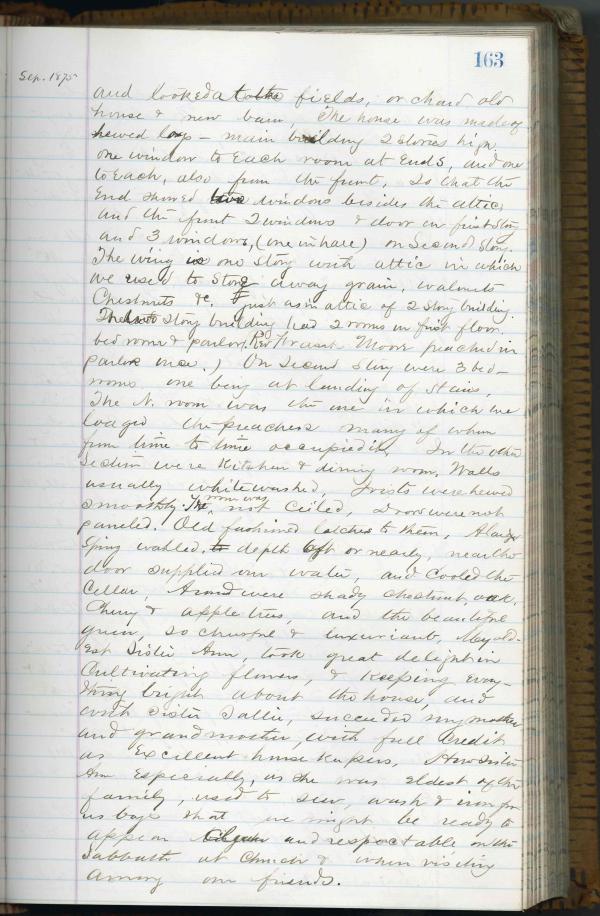 163
Sep. 1875
and looked at the fields, orchard old
house & new barn. The house was made of
hewed logs – main building 2 stories high
one window to each room at Ends, and one
to each, also from the front. So that the
End showed two windows besides the attic,
and the front 2 windows & door in first Story
and 3 windows, (one in hall) on Second Story.
The wing is one Story with attic in which
we used to Store away grain, walnuts
Chestnuts &c. just as in attic of 2 Story building.
The two Story building had 2 rooms in first floor.
bed room & parlor. Rev Moore preached in
parlor once.) On Second Story were 3 bed-
rooms one being at landing of Stairs,
The N. room was the one in which we
lodged the preachers many of whom
from time to time occupied it. In the other
Section were Kitchen & dining room. Walls
usually whitewashed, Joists were hewed
smoothly. The room was not Ceiled, Doors were not
paneled. Old fashioned latches to them. A large
Spring walled to depth 6 ft or nearly, near the
door supplied our water, and Cooled the
Cellar. Around were shady chestnut, oak,
Cherry & apple trees, and the beautiful
green, so cheerful & luxuriant. My old-
est Sister Ann, took great delight in
Cultivating flowers, & Keeping every-
thing bright about the house, and
with Sister Sallie, succeeded my mother
and grandmother, with full Credit
as Excellent house Kepers. How Sister
Ann Especially, as she was eldest of the
family, used to sew, wash & iron for
us boys that we might be ready to
appear clean and respectable on the
Sabbath at Church & when visiting
among our friends.